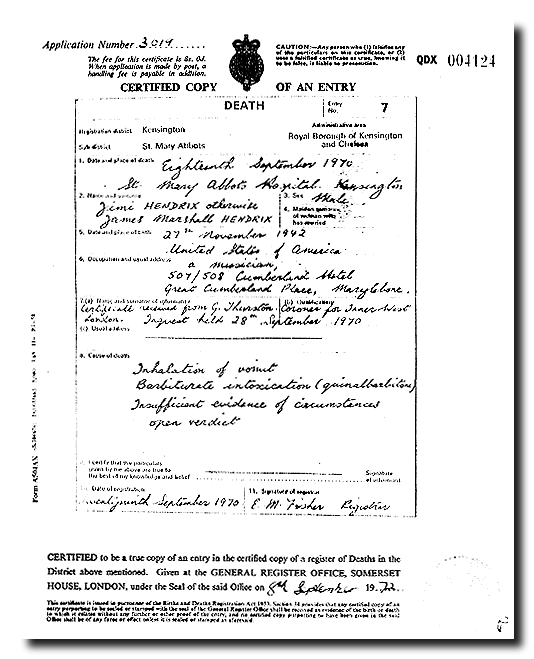 Application Number 3014
The fee for this certificate is 8s. 0d.
When application is made by post, a
handling fee is payable in addition.
CAUTION:—Any person who (1) falsifies any
of the particulars on this certificate, or (2)
uses a falsified certificate as true, knowing it
to be false, is liable to prosecution.
QDX 004124
CERTIFIED COPY OF AN ENTRY
DEATH
Entry No. 7
Registration district Kensington
Administrative area
Sub-district St. Mary Abbots
Royal Borough of Kensington
and Chelsea
1. Date and place of death Eighteenth September 1970
St. Mary Abbots Hospital. Kensington
2. Name and surname
Jimi HENDRIX otherwise
James Marshall HENDRIX
3. Sex Male
4. Maiden surname
of woman who
has married
5. Date and place of birth 27th November 1942
United States of America
6. Occupation and usual address a musician,
507/508 Cumberland Hotel
Great Cumberland Place, Marylebone.
7.(a) Name and surname of informant
(b) Qualification
Certificate received from G. Thurston Coroner for Inner West
London. Inquest held 28th September 1970
(c) Usual address
8. Cause of death
Inhalation of vomit
Barbiturate intoxication (quinalbarbitone)
Insufficient evidence of circumstances
open verdict
I certify that the particulars
given by me above are true to
the best of my knowledge and belief
Signature
of informant
Date of registration
September 1970
11. Signature of registrar
E. M. Fisher Registrar
CERTIFIED to be a true copy of an entry in the certified copy of a register of Deaths in the
District above mentioned. Given at the GENERAL REGISTER OFFICE, SOMERSET
HOUSE, LONDON, under the Seal of the said Office on 8th September 1972.
This certificate is issued in pursuance of the Births and Deaths Registration Act 1953. Section 34 provides that any certified copy of an
entry purporting to be sealed or stamped with the seal of the General Register Office shall be received as evidence of the birth or death
to which it relates without any further or other proof of the entry, and no certified copy purporting to have been given in the said
Office shall be of any force or effect unless it is sealed or stamped as aforesaid.